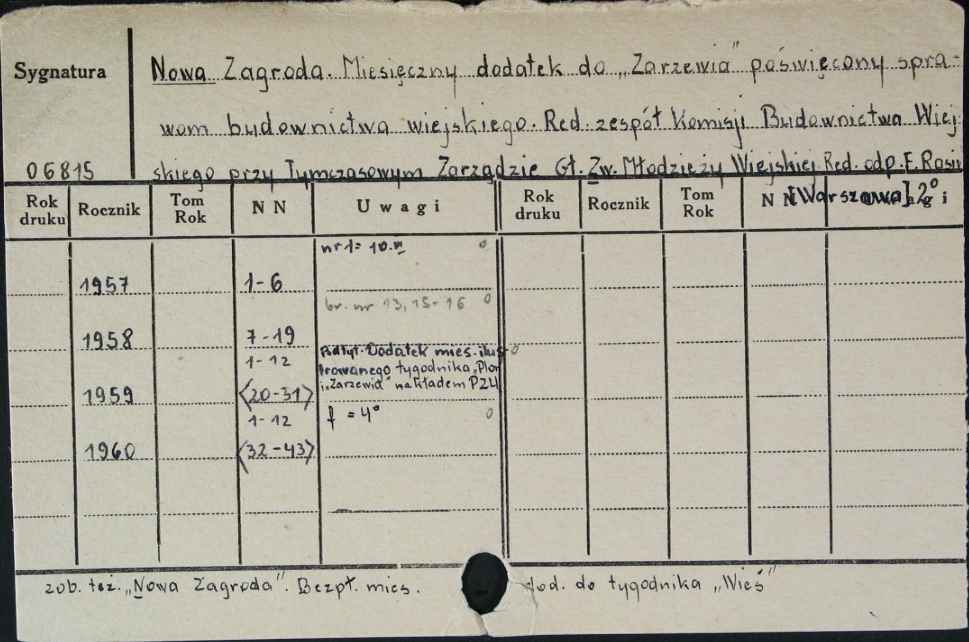 Sygnatura
Nowa Zagroda. Miesięczny dodatek do „Zarzewia” poświęcony spra-
wom budownictwa wiejskiego. Red. zespół Komisji Budownictwa Wiej
06815 skiego przy Tymczasowym Zarządzie Gł. Zw. Młodzieży Wiejskiej Red. odp. E. Rosiu
[Warszawa] 2°
Rok druku Rocznik Tom Rok N N Uwagi Rok druku Rocznik Tom Rok N N Uwagi
nr 1 = 10.III 0
1957 1-6
br. nr 13, 15-16 0
1958 7-19
1-12 Podtyt. Dodatek mies. ilus- 0
trowanego tygodnika „Plon
1959 <20-31> i „Zarzewia” nakładem PZU
1-12 f = 4° 0
1960 <32-43>
zob. też. „Nowa Zagroda”. Bezpł. mies. dod. do tygodnika „Wieś”